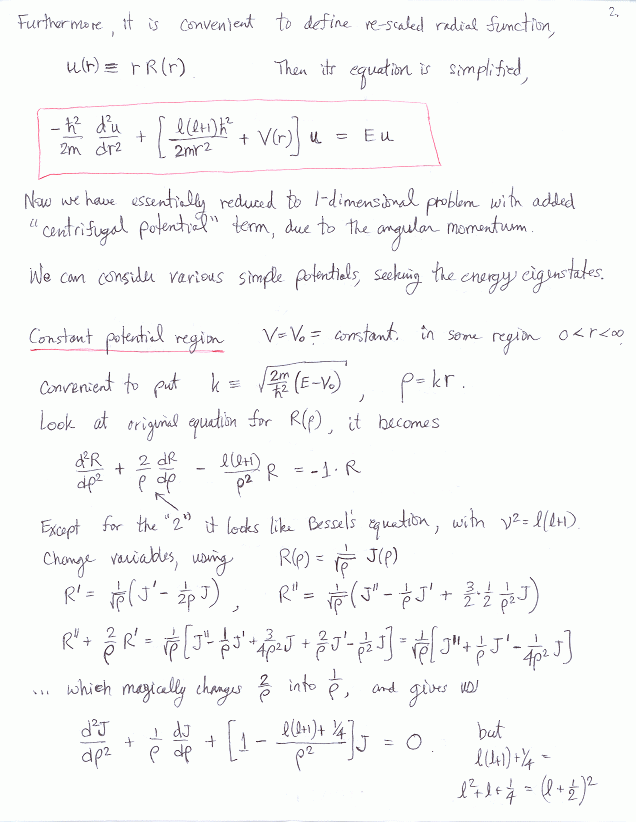 2.
Furthermore, it is convenient to define re-scaled radial function,
u(r) ≡ r R(r). Then its equation is simplified,
-ħ²/2m d²u/dr² + [ l(l+1)ħ²/2mr² + V(r) ] u = E u
Now we have essentially reduced to 1-dimensional problem with added
"centrifugal potential" term, due to the angular momentum.
We can consider various simple potentials, seeking the energy eigenstates.
Constant potential region V=V₀ = constant. in some region 0<r<∞
Convenient to put k ≡ √(2m/ħ² (E-V₀)) , ρ=kr.
Look at original equation for R(ρ), it becomes
d²R/dρ² + 2/ρ dR/dρ - l(l+1)/ρ² R = -1·R
Except for the "2" it looks like Bessel's equation, with ν²=l(l+1)
Change variables, using R(ρ) = 1/√ρ J(ρ)
R' = 1/√ρ (J' - 1/2ρ J) , R'' = 1/√ρ (J'' - 1/ρ J' + 3/2·1/2 1/ρ² J)
R'' + 2/ρ R' = 1/√ρ [J'' - 1/ρ J' + 3/4ρ² J + 2/ρ J' - 1/ρ² J] = 1/√ρ [J'' + 1/ρ J' - 1/4ρ² J]
... which magically changes 2/ρ into 1/ρ, and gives us
d²J/dρ² + 1/ρ dJ/dρ + [1 - (l(l+1)+1/4)/ρ²] J = 0.
but
l(l+1)+1/4 =
l²+l+1/4 = (l+1/2)²